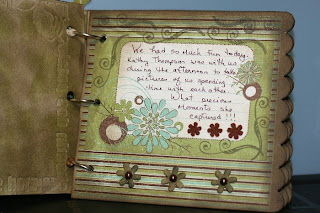 We had so much fun today.
Kathy Thompson was with us
during the afternoon to take
pictures of us spending
time with each other.
What precious
moments she
captured!!!